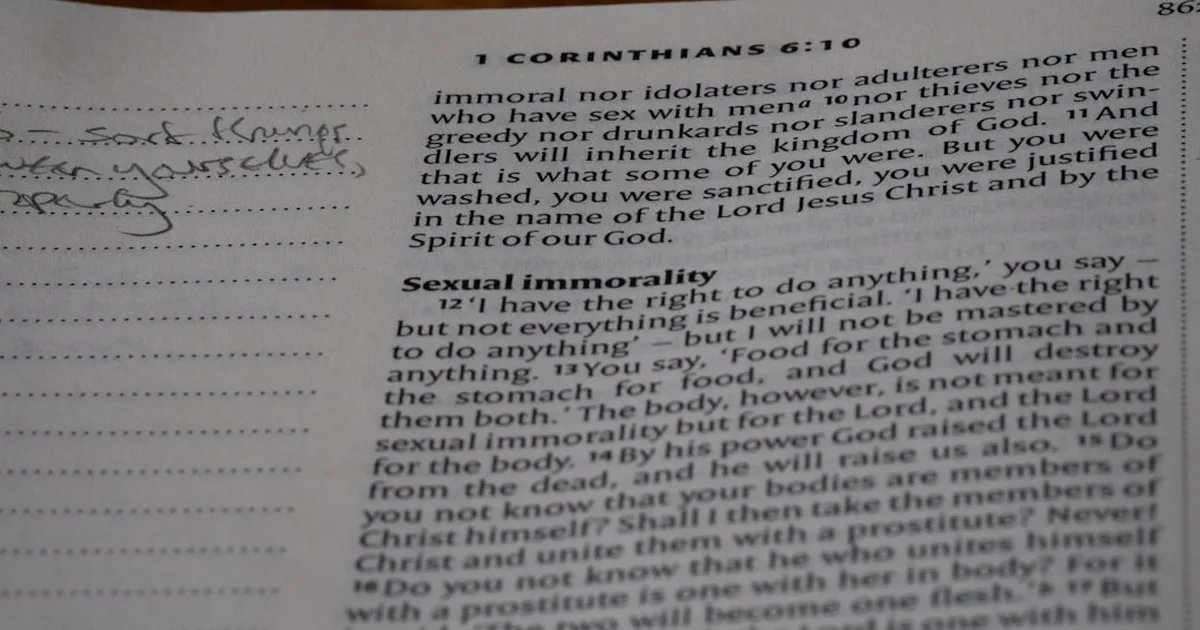 86
1 CORINTHIANS 6:10
– sort things
yourselves,
immoral nor idolaters nor adulterers nor men
who have sex with menᵃ ¹⁰nor thieves nor the
greedy nor drunkards nor slanderers nor swin-
dlers will inherit the kingdom of God. ¹¹And
that is what some of you were. But you were
washed, you were sanctified, you were justified
in the name of the Lord Jesus Christ and by the
Spirit of our God.
Sexual immorality
¹²‘I have the right to do anything,’ you say –
but not everything is beneficial. ‘I have the right
to do anything’ – but I will not be mastered by
anything. ¹³You say, ‘Food for the stomach and
the stomach for food, and God will destroy
them both.’ The body, however, is not meant for
sexual immorality but for the Lord, and the Lord
for the body. ¹⁴By his power God raised the Lord
from the dead, and he will raise us also. ¹⁵Do
you not know that your bodies are members of
Christ himself? Shall I then take the members of
Christ and unite them with a prostitute? Never!
¹⁶Do you not know that he who unites himself
with a prostitute is one with her in body? For it
‘The two will become one flesh.’ᵇ ¹⁷But
is one with him